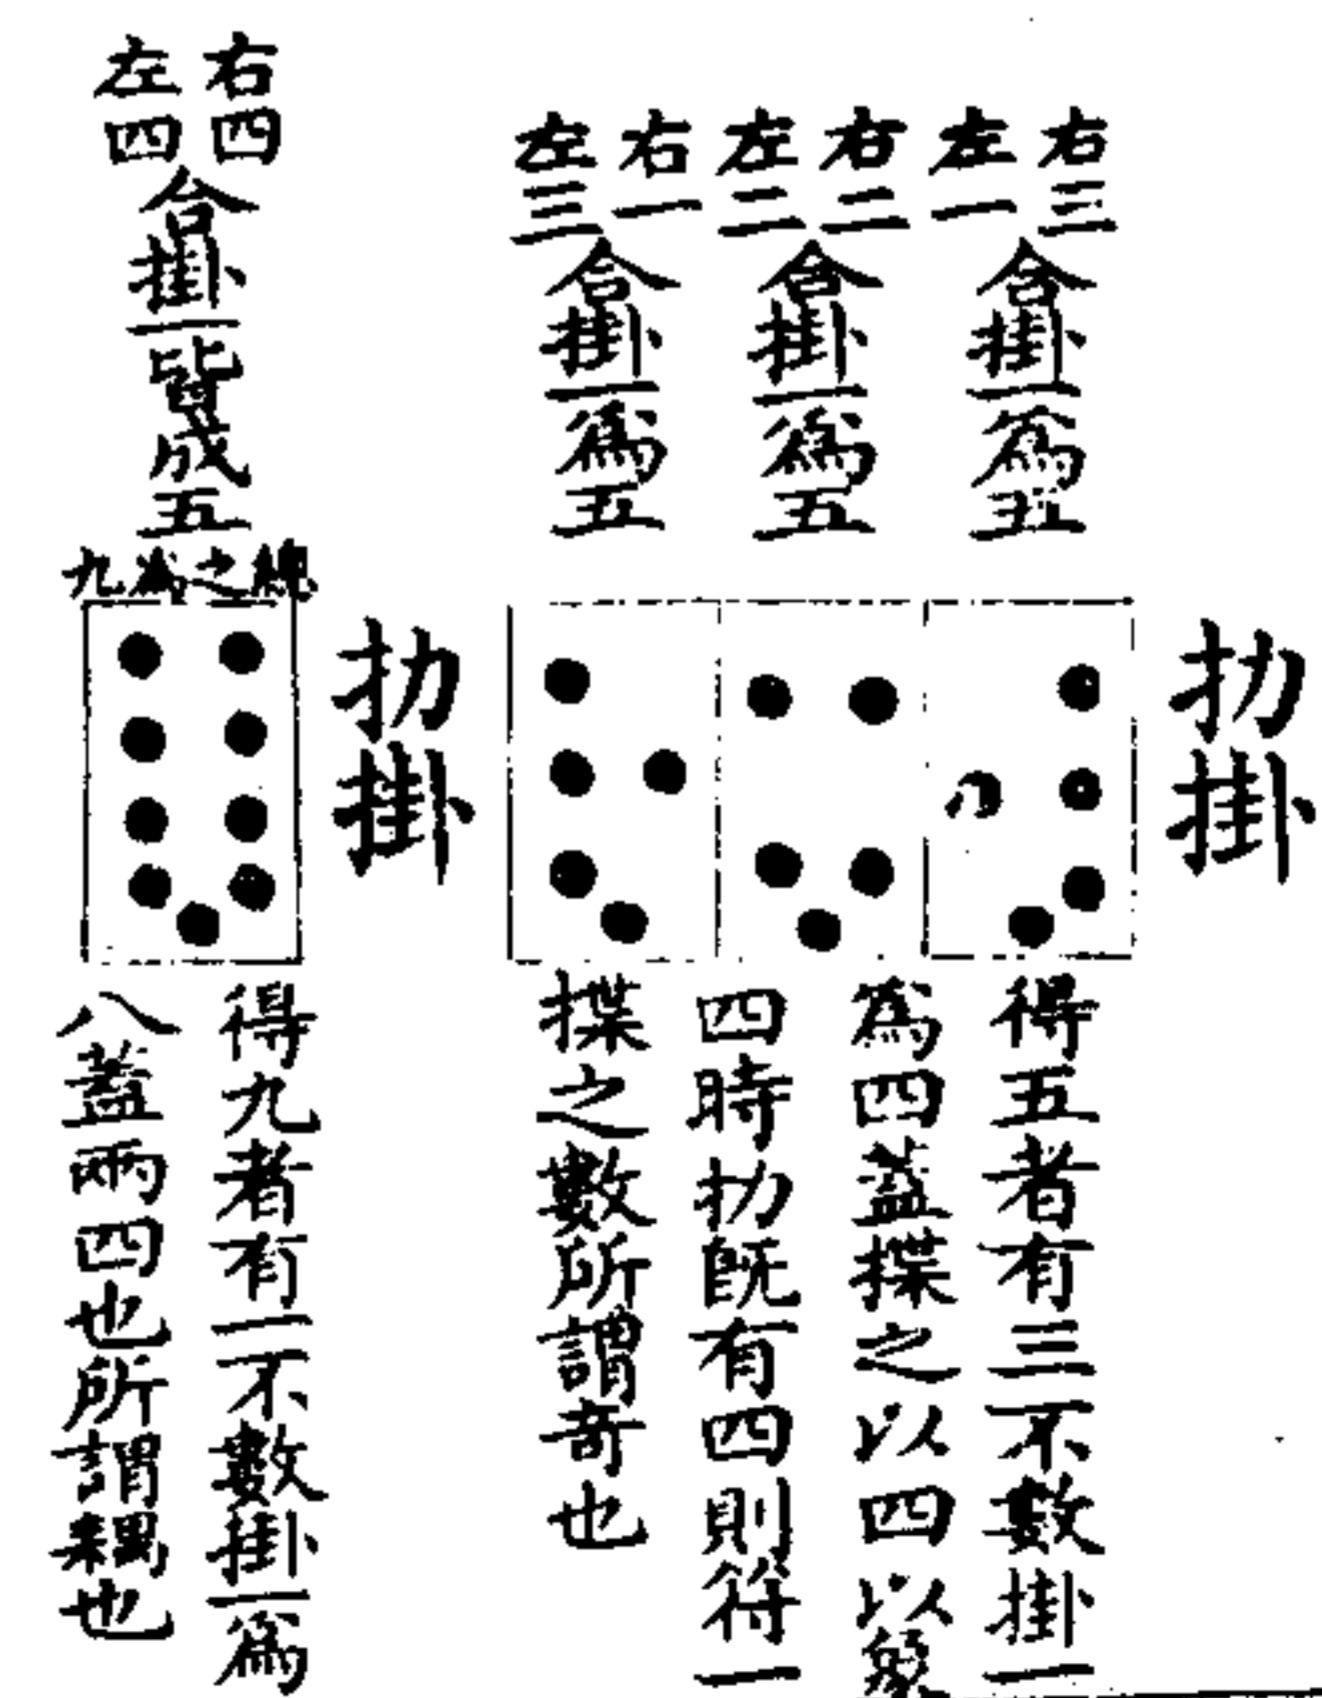 扐掛
右三
左一
合掛一爲五
右二
左二
合掛一爲五
右一
左三
合掛一爲五
得五者有三不數掛一
爲四蓋揲之以四以象
四時扐既有四則符一
揲之數所謂奇也
扐掛
右四
左四
合掛一皆成五
總之爲九
得九者有一不數掛一爲
八蓋兩四也所謂耦也